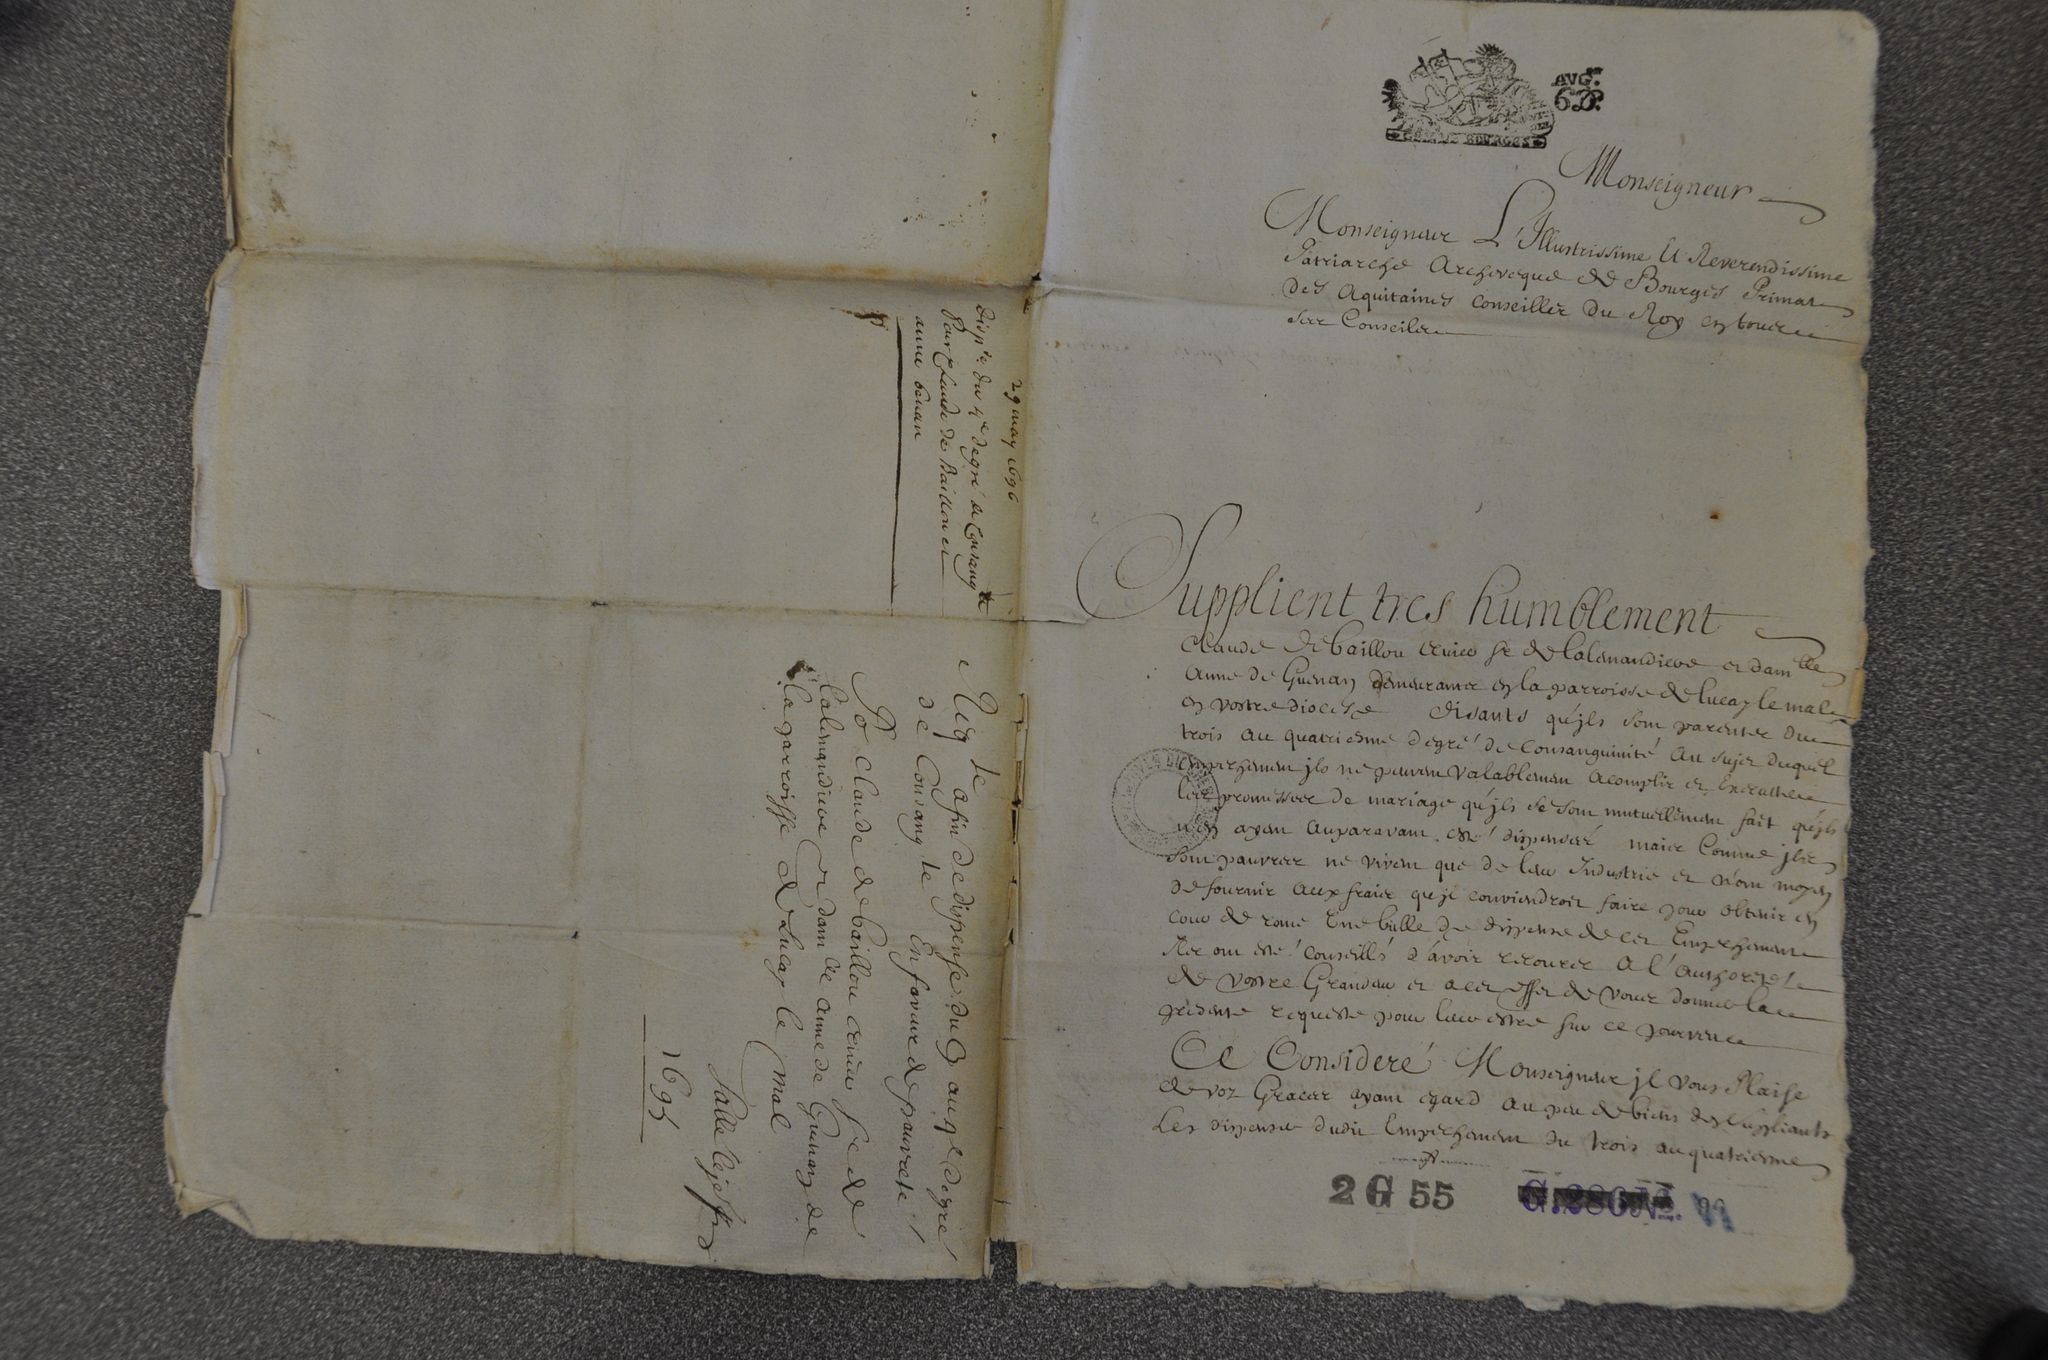 AVG.on
6 D.
GEN. DE BOURGES
Monseigneur
Monseigneur L'Illustrissime Et Reverendissime
Patriarche Archevesque de Bourges Primat
Des Aquitaines Conseiller Du Roy en tous
ses Conseils
Supplient tres humblement
Claude de baillou escuier sr de lalemandiere et damlle
Anne de Guenan demeurants en la parroisse de lucay le mal
en vostre diocese disants qu'jls sont parents du
trois au quatriesme degré de Consanguinité au sujet duquel
empeschement jls ne peuvent valablement acomplir et Executer
les promesses de mariage qu'jls se sont mutuellement fait qu'jls
n'en ayent auparavant esté dispensés mais Comme jls
sont pauvres ne vivent que de leur Industrie et n'ont moyen
de fournir aux frais qu'jl conviendroit faire pour obtenir en
cour de rome Une bulle de dispense de cet Empeschement
Ils ont esté Conseillés d'avoir recours a l'authorité
de vostre Grandeur et a cet effet de vous donner la
presente requeste pour leur estre sur ce pourveu
Ce Consideré Monseigneur jl vous Plaise
de voz Graces ayant egard au peu de biens des suppliants
Les dispenser dudit Empeschement du trois au quatriesme
2 G 55
29 may 1696
Dispse du 4e degré de Consangté
Pour Claude de Baillou et
anne Genan
Reqte afin de dispense du 3 au 4e degré
de Consangté En faveur de pauvreté
Pr Claude de baillou escuier sr de
lalemandiere et damlle anne de Guenan de
la parroisse de Lucay le mal
1695